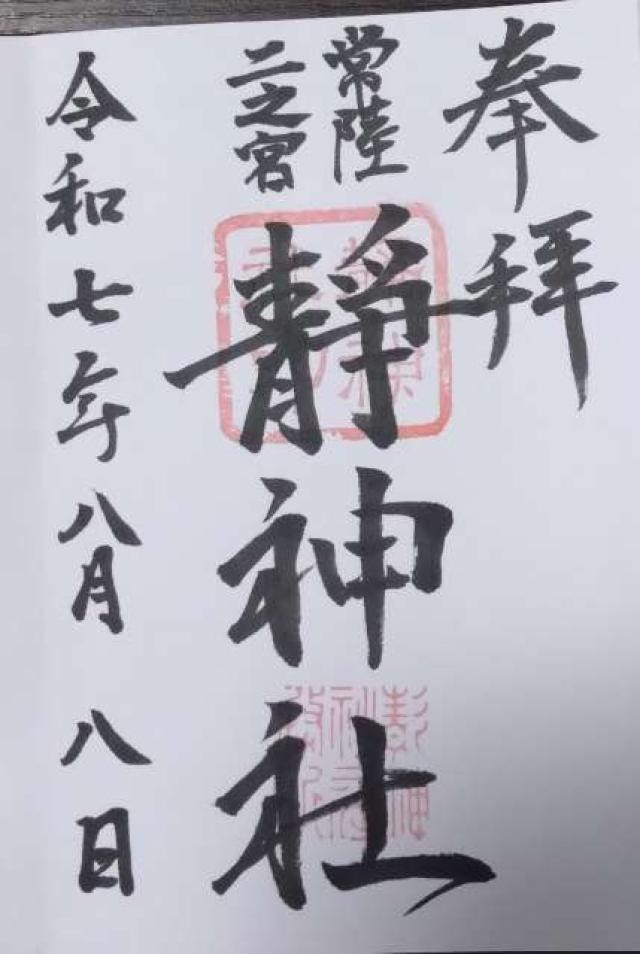 奉拝
常陸
二之宮
靜神社
令和七年八月八日